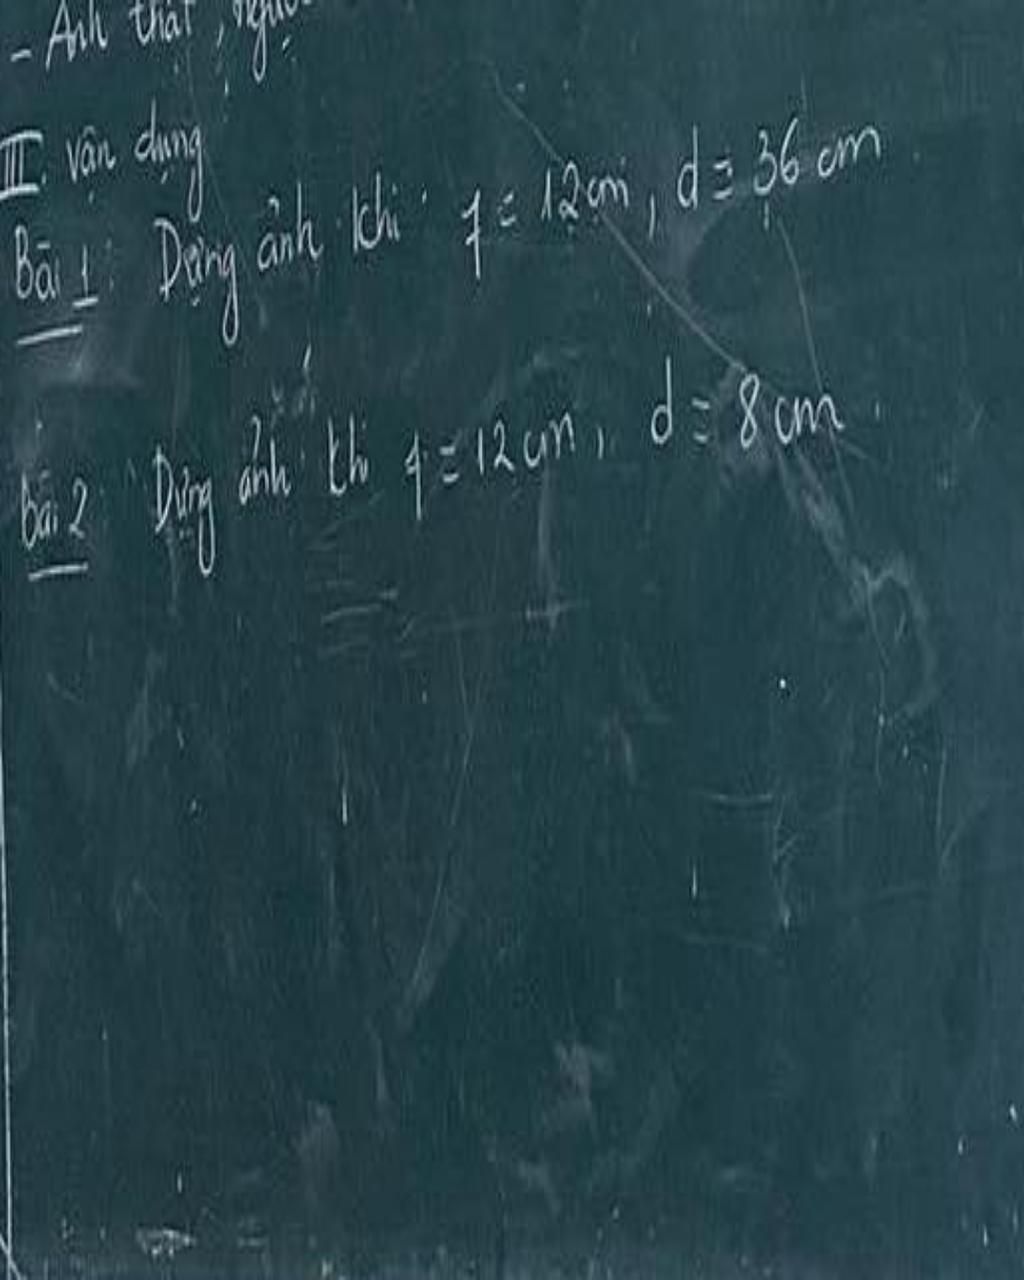 - Ảnh thật, ngược
III. Vận dụng
Bài 1: Dựng ảnh khi f = 12cm, d = 36 cm.
Bài 2: Dựng ảnh khi f = 12cm, d = 8 cm.